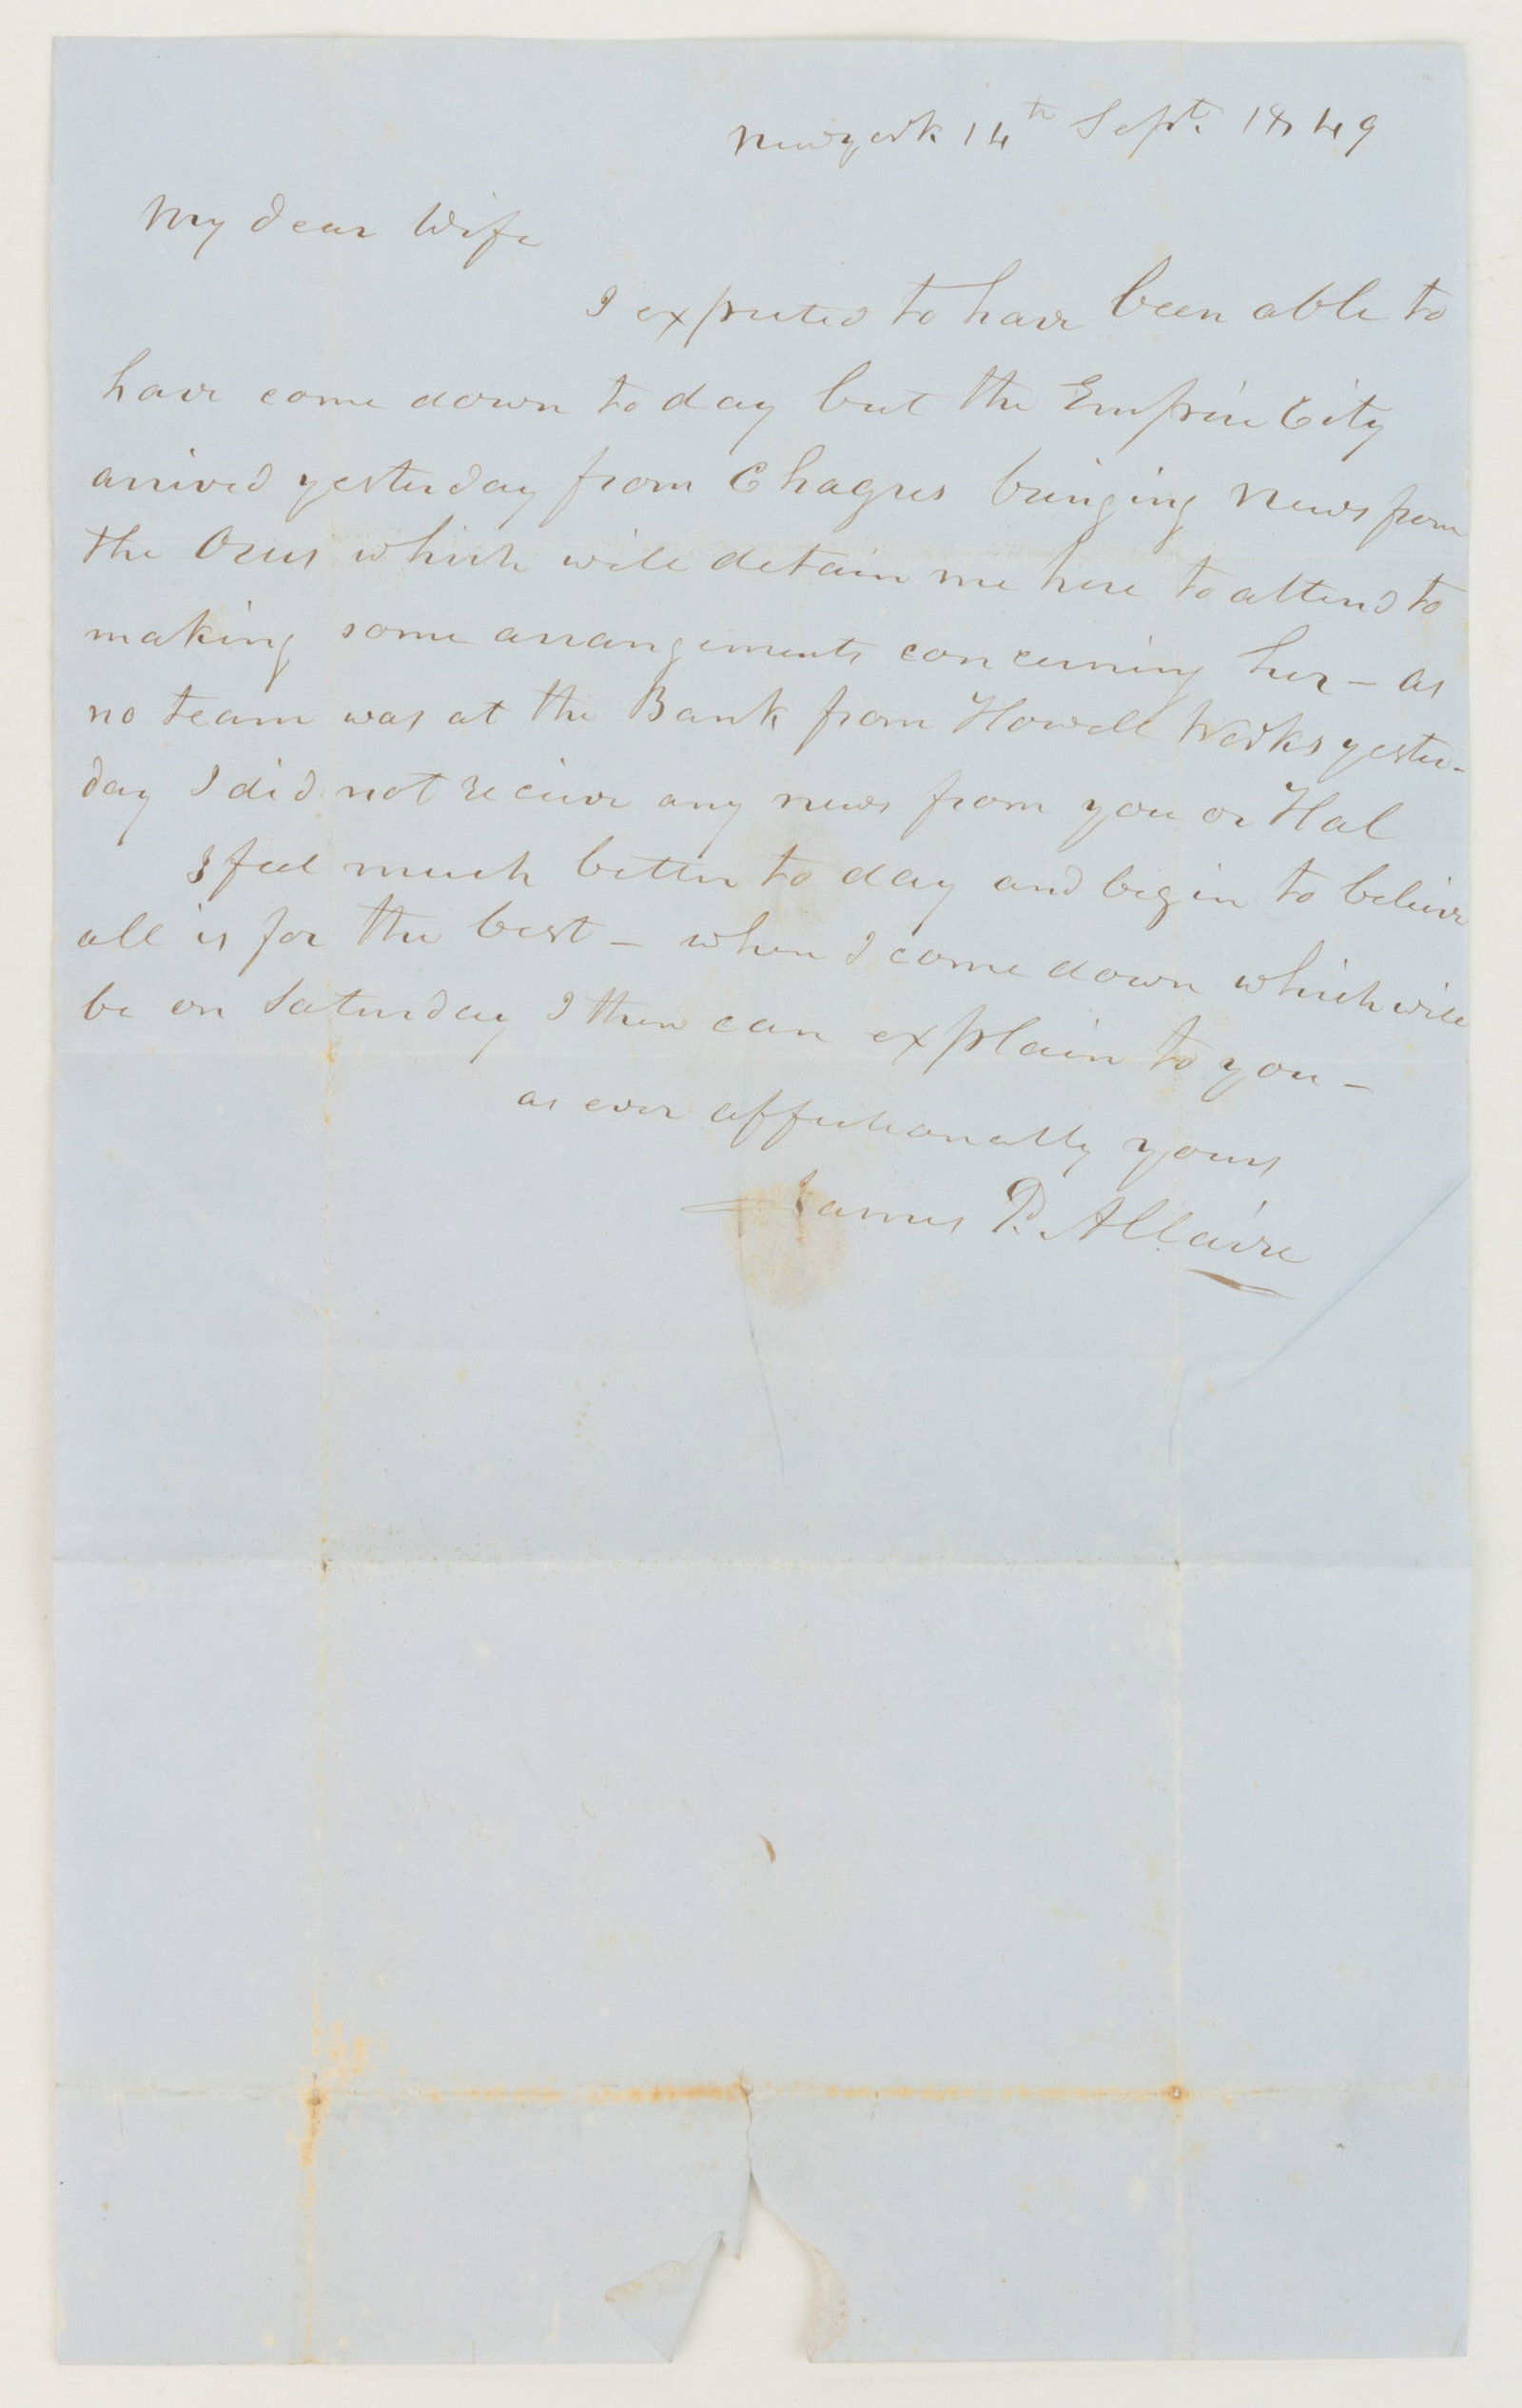 Newyork 14th Sept. 1849
My dear Wife
I expected to have been able to
have come down to day but the Empire City
arrived yesterday from Chagres bringing news from
the Orus which will detain me here to attend to
making some arrangements concerning her – as
no team was at the Bank from Howell Works yester-
day I did not receive any news from you or Hal
I feel much better to day and begin to believe
all is for the best – when I come down which will
be on Saturday I then can explain to you –
as ever affectionally yours
James P. Allaire